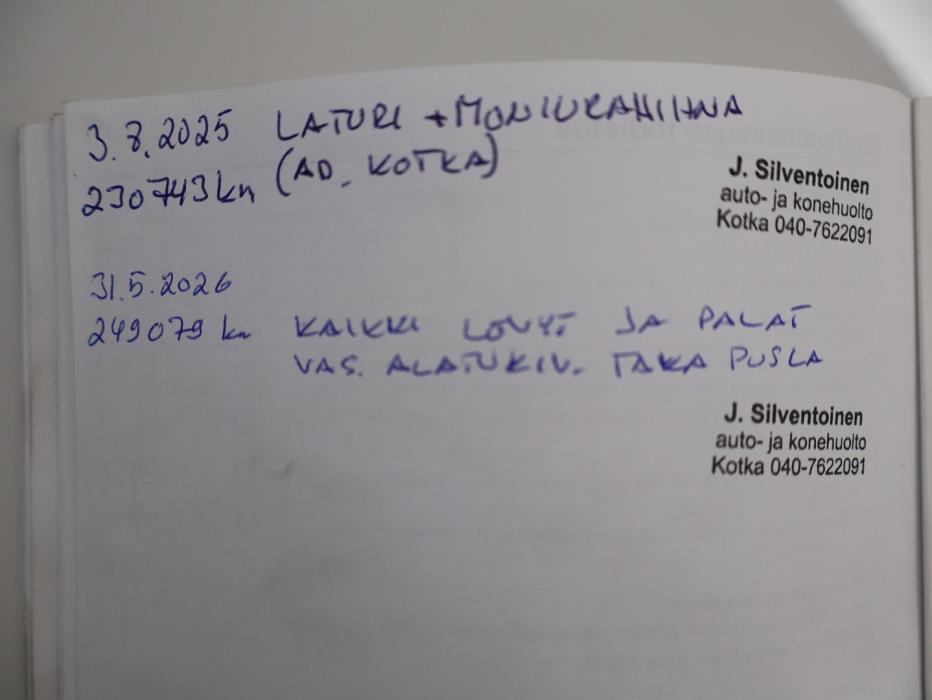 3.8.2025 LATURI + MONIURAHIHNA
230743 km (AD. KOTKA)
J. Silventoinen
auto- ja konehuolto
Kotka 040-7622091
31.5.2026
249079 km KAIKKI LEVYT JA PALAT
VAS. ALATUKIV. TAKA PUSLA
J. Silventoinen
auto- ja konehuolto
Kotka 040-7622091